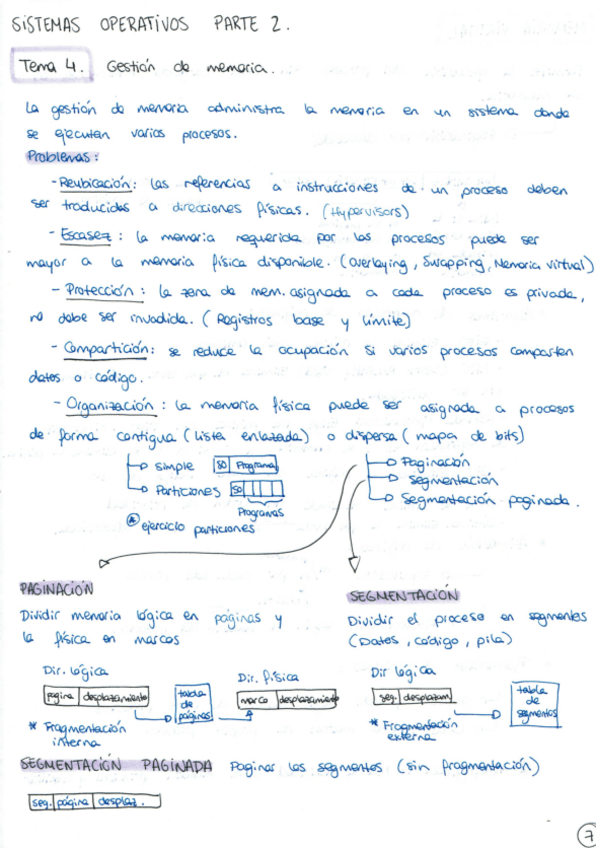 SISTEMAS OPERATIVOS PARTE 2.
Tema 4. Gestión de memoria.
La gestión de memoria administra la memoria en un sistema donde
se ejecutan varios procesos.
Problemas:
- Reubicación: las referencias a instrucciones de un proceso deben
ser traducidas a direcciones físicas. (Hypervisors)
- Escasez: la memoria requerida por los procesos puede ser
mayor a la memoria física disponible. (Overlaying, Swapping, Memoria virtual)
- Protección: la zona de mem. asignada a cada proceso es privada,
no debe ser invadida. (Registros base y límite)
- Compartición: se reduce la ocupación si varios procesos comparten
datos o código.
- Organización: la memoria física puede ser asignada a procesos
de forma contigua (lista enlazada) o dispersa (mapa de bits)
Simple SO Programa
Particiones SO
Programas
* ejercicio particiones
Paginación
Segmentación
Segmentación paginada.
PAGINACIÓN
Dividir memoria lógica en páginas y
la física en marcos
Dir. lógica
página desplazamiento
tabla
de
páginas
Dir. física
marco desplazamiento
* Fragmentación
interna
SEGMENTACIÓN
Dividir el proceso en segmentos
(Datos, código, pila)
Dir lógica
seg. desplazam.
tabla
de
segmentos
* Fragmentación
externa
SEGMENTACIÓN PAGINADA Paginar los segmentos (sin fragmentación)
seg. página desplaz.
7